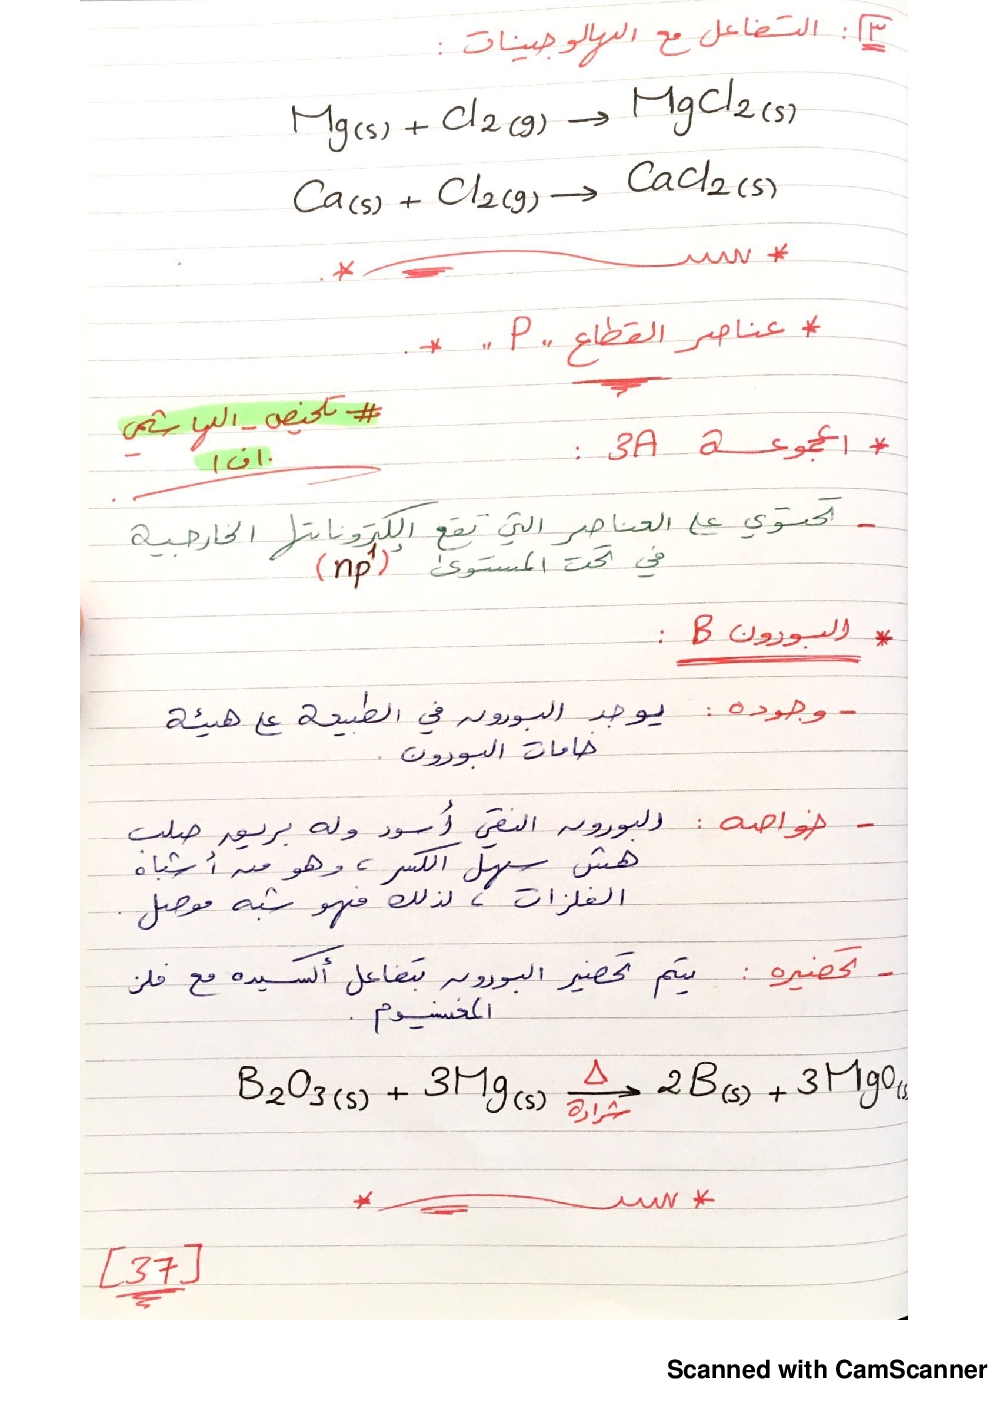 ٣: التفاعل مع الهالوجينات :
Mg(s) + Cl2(g) → MgCl2(s)
Ca(s) + Cl2(g) → CaCl2(s)
* عناصر القطاع "P" *
#تلخيص_الهاشمي
* المجموعة 3A :
- تحتوي على العناصر التي تقع إلكتروناتها الخارجية
في تحت المستوى (np¹)
* البورون B :
- وجوده : يوجد البورون في الطبيعة على هيئة
خامات البورون .
- خواصه : البورون النقي أسود وله بريق صلب
هش سهل الكسر ، وهو من أشباه
الفلزات ، لذلك فهو شبه موصل .
- تحضيره : يتم تحضير البورون بتفاعل أكسيده مع فلز
المغنسيوم .
B2O3(s) + 3Mg(s) Δ شرارة → 2B(s) + 3MgO(s
[37]
Scanned with CamScanner